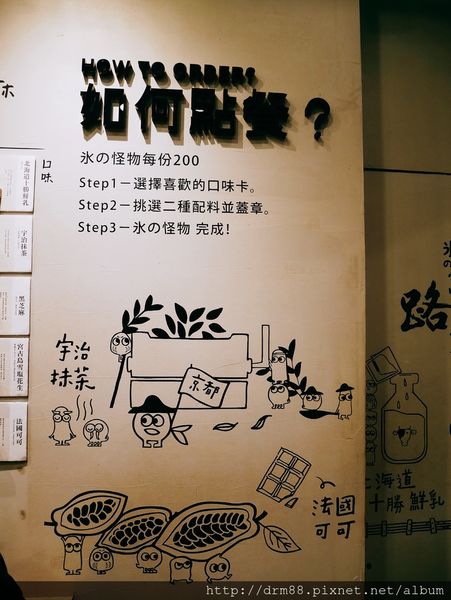 HOW TO ORDER?
如何點餐？
氷の怪物每份200
Step1－選擇喜歡的口味卡。
Step2－挑選二種配料並蓋章。
Step3－氷の怪物 完成!
口味
北海道十勝鮮乳
宇治抹茶
黑芝麻
宮古島雪塩花生
法國可可
宇治
抹茶
京都
法國
可可
氷の
路
北海道
十勝 鮮乳
http://drm88.pixnet.net/album